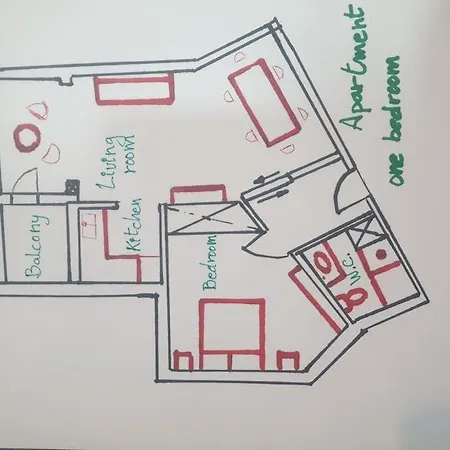 Apartment
one bedroom
Living
room
Kitchen
Balcony
Bedroom
W.C.